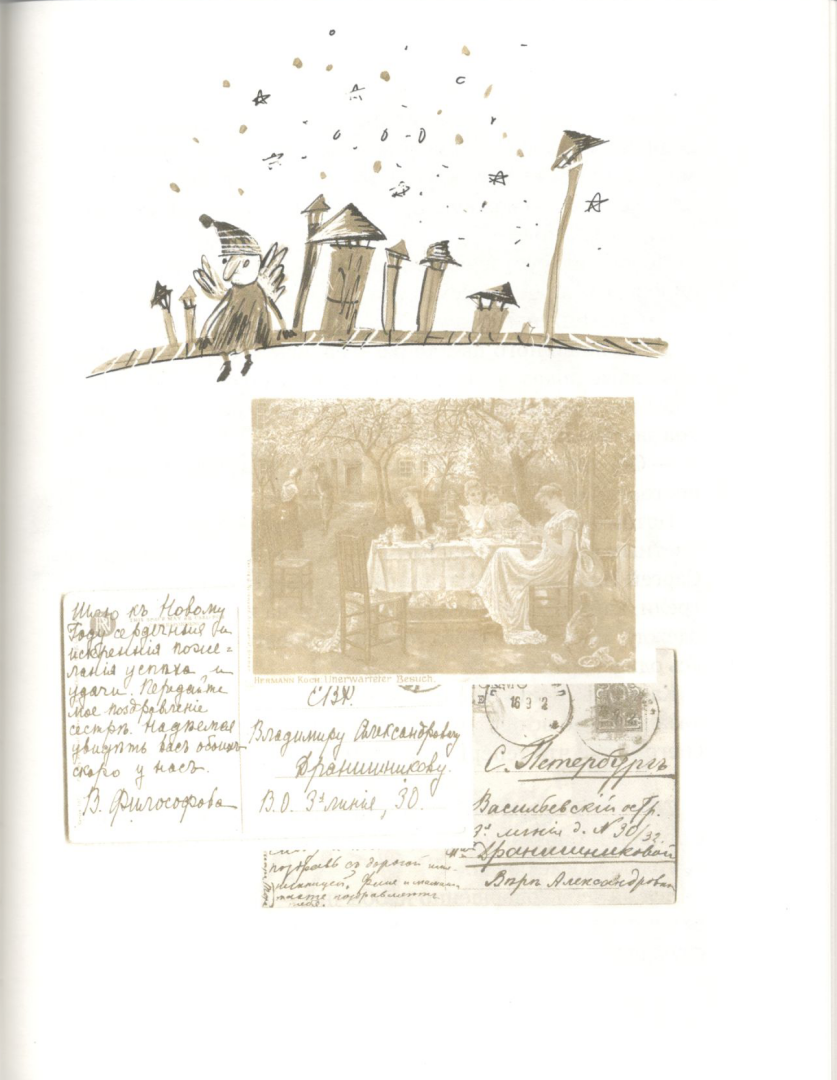 HERMANN KOCH. Unerwarteter Besuch.
Шлю къ Новому
Году сердечныя и
искреннія поже=
ланія успѣха и
удачи. Передайте
мое поздравленіе
сестрѣ. Надѣемся
увидѣть васъ обоихъ
скоро у насъ.
В. Философова
СПЖ.
Владимиру Александровичу
Дранишникову.
В.О. 3я линія, 30.
С. Петербургъ
Васильевскій остр.
3я линія д. N 30/32
Дранишниковой
Вѣрѣ Александровнѣ
поздравь съ дорогой
также поздравляютъ